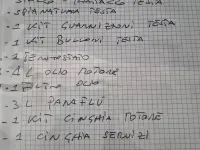 SPIANATURA TESTA
- 1 KIT GUARNIZIONI TESTA
- 1 KIT BULLONI TESTA
- 1 TERMOSTATO
- 4 L OLIO MOTORE
- 1 FILTRO OLIO
- 3 L PARAFLÙ
- 1 KIT CINGHIA MOTORE
- 1 CINGHIA SERVIZI